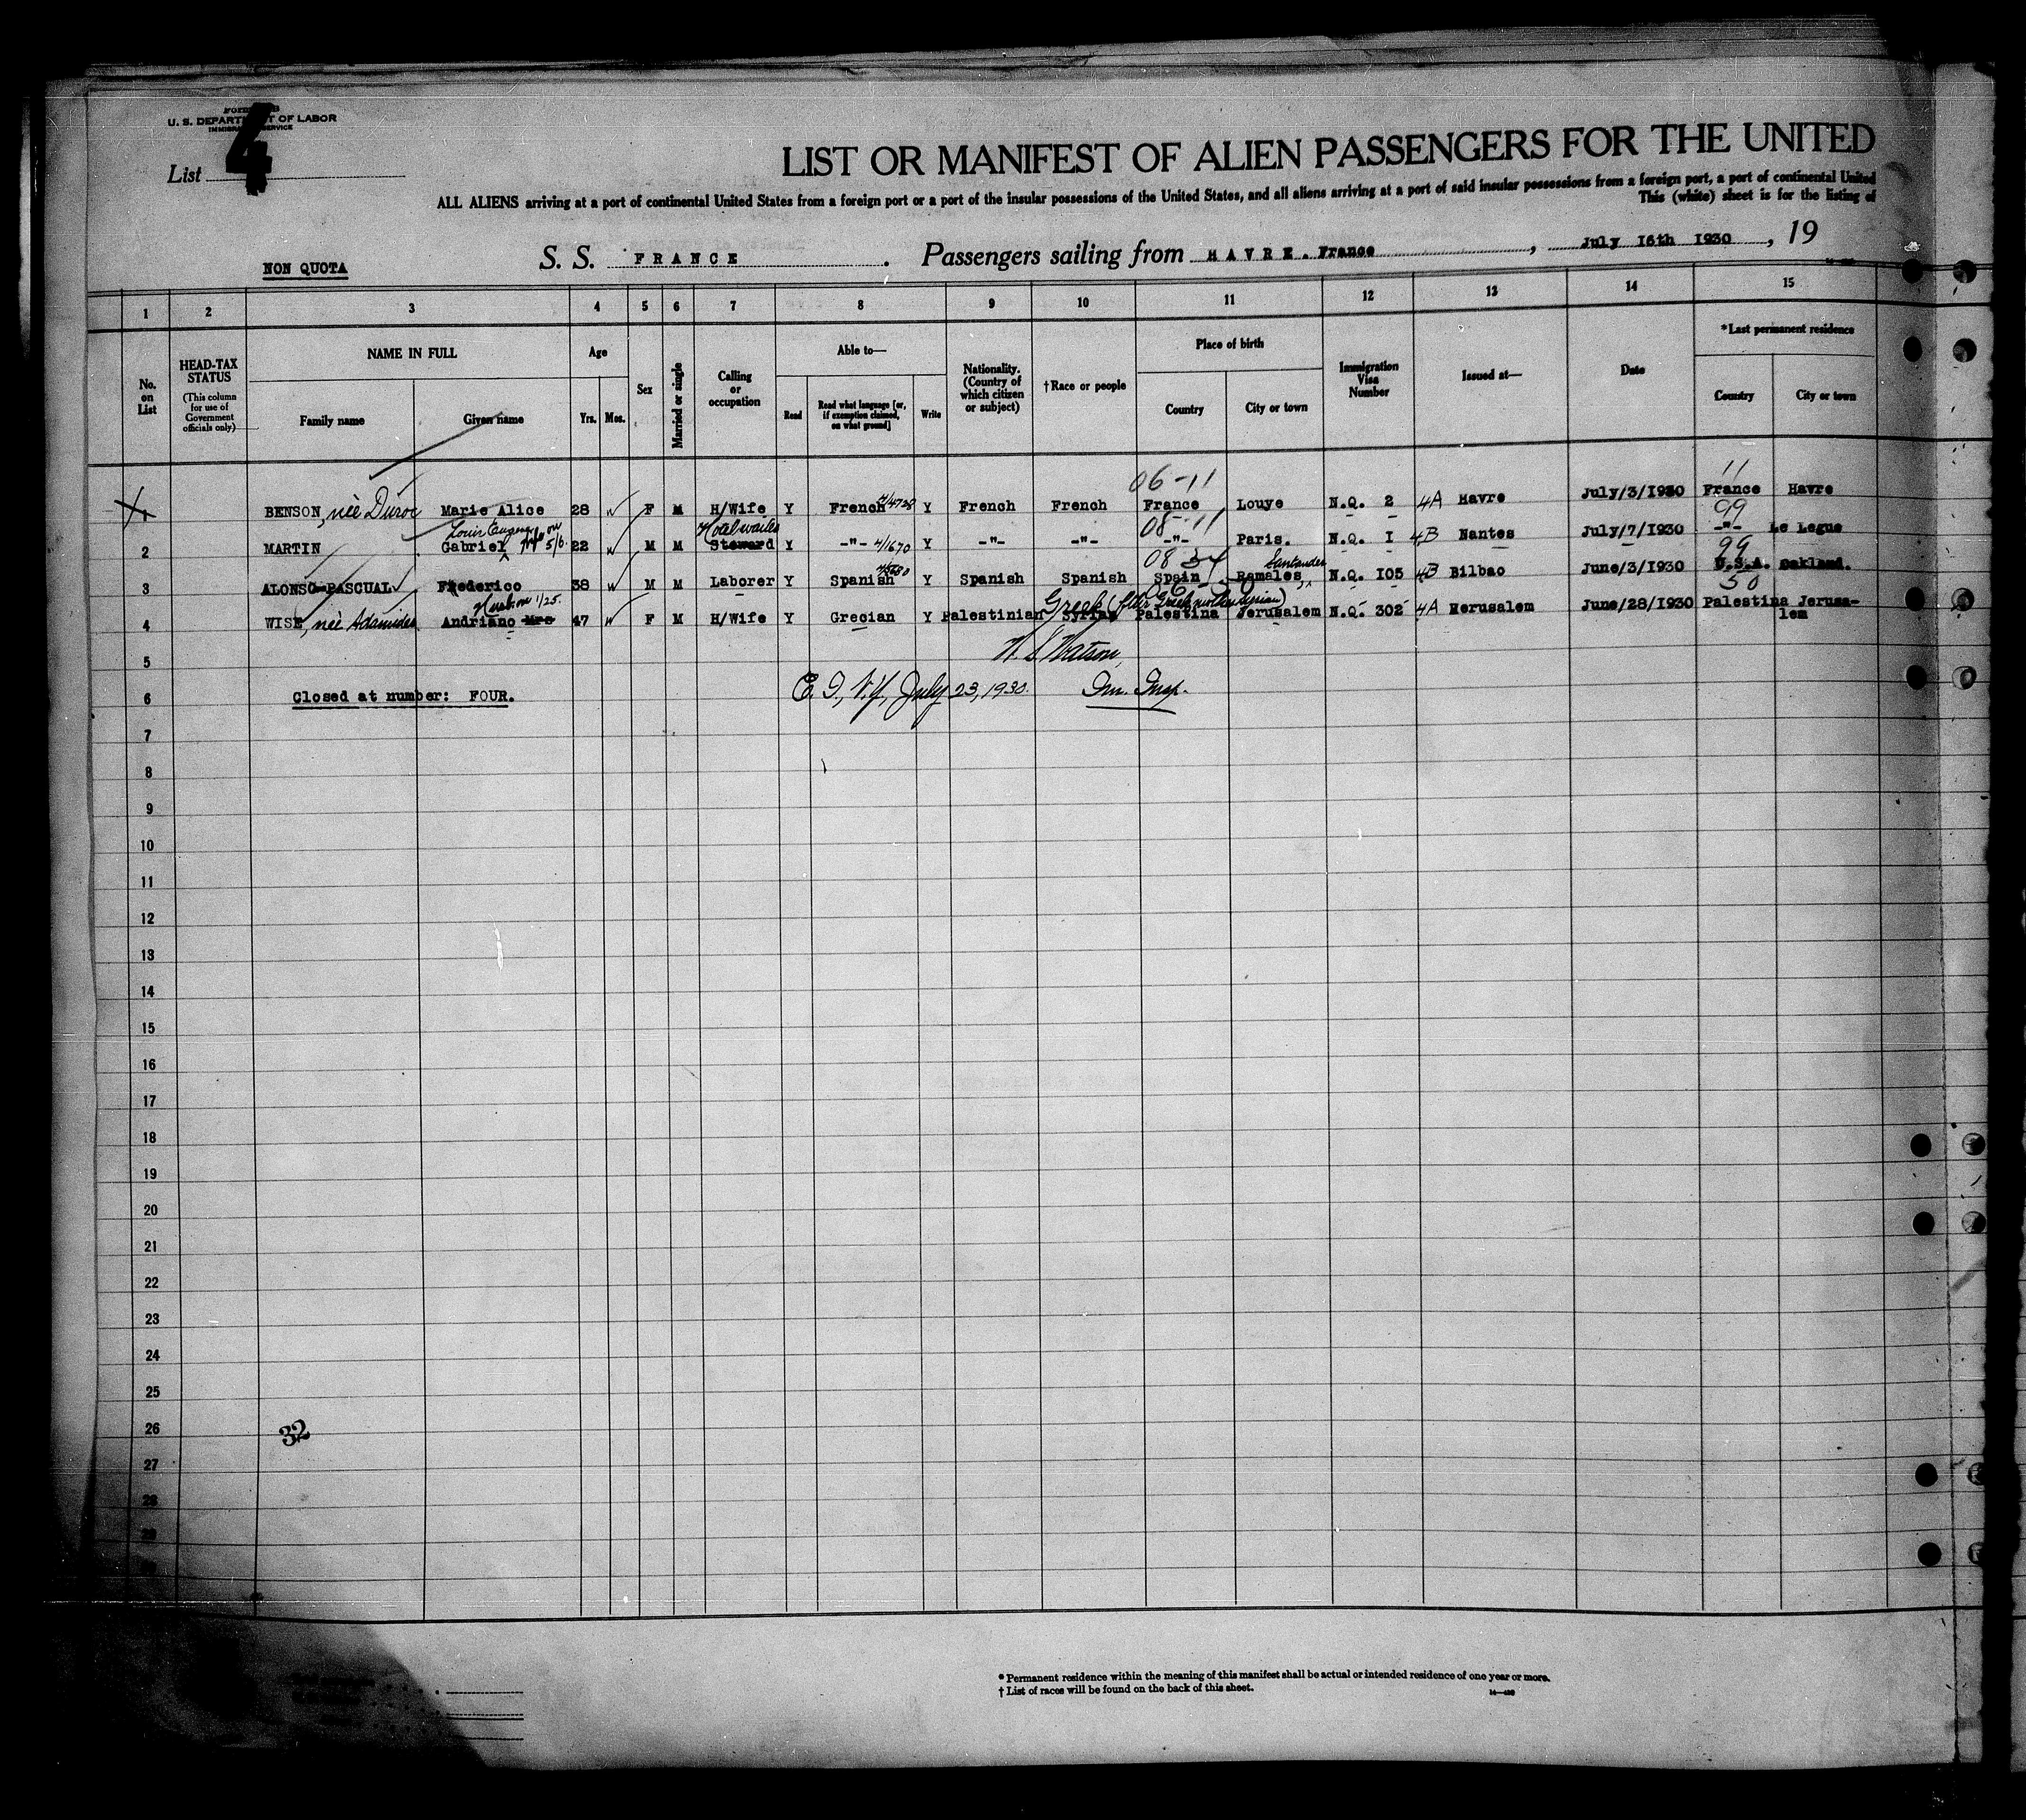 U. S. DEPARTMENT OF LABOR
IMMIGRATION SERVICE
4
List
LIST OR MANIFEST OF ALIEN PASSENGERS FOR THE UNITED
ALL ALIENS arriving at a port of continental United States from a foreign port or a port of the insular possessions of the United States, and all aliens arriving at a port of said insular possessions from a foreign port, a port of continental United
This (white) sheet is for the listing of
NON QUOTA
S. S. FRANCE. Passengers sailing from HAVRE. France, July 16th 1930, 19
1 2 3 4 5 6 7 8 9 10 11 12 13 14 15
No. on List
HEAD-TAX STATUS (This column for use of Government officials only)
NAME IN FULL
Family name
Given name
Age
Yrs. Mos.
Sex
Married or single
Calling or occupation
Able to—
Read
Read what language [or, if exemption claimed, on what ground]
Write
Nationality. (Country of which citizen or subject)
†Race or people
Place of birth
Country
City or town
Immigration Visa Number
Issued at—
Date
*Last permanent residence
Country
City or town
06-11 11
1 BENSON, née Duroc Marie Alice 28 F M H/Wife Y French Y French French France Louye N.Q. 2 4A Havre July/3/1930 France Havre
Louis Eugene Hotel waiter 08-11 99
2 MARTIN Gabriel 22 M M Steward Y -"- 4/1670 Y -"- -"- -"- Paris. N.Q. I 4B Nantes July/7/1930 -"- Le Legue
08 34 Santander 99
3 ALONSO-PASCUAL Frederico 38 M M Laborer Y Spanish Y Spanish Spanish Spain Ramales, N.Q. 105 4B Bilbao June/3/1930 U.S.A. Oakland.
1/25. Greek 50
4 WISE, née Adamides Andriano Mrs 47 F M H/Wife Y Grecian Y Palestinian Syrian Palestina Jerusalem N.Q. 302 4A Herusalem June/28/1930 Palestina Jerusa-
lem
5
W. S. Watson,
6 Closed at number: FOUR. E. I., N.Y., July 23, 1930. Im. Insp.
7
8
9
10
11
12
13
14
15
16
17
18
19
20
21
22
23
24
25
26
32
27
28
29
* Permanent residence within the meaning of this manifest shall be actual or intended residence of one year or more.
† List of races will be found on the back of this sheet.